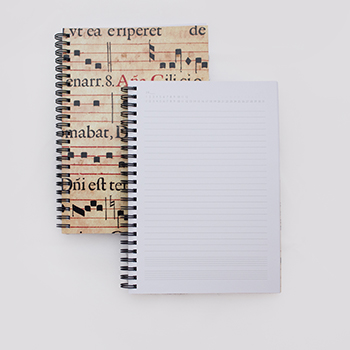 Lvt ea eriperet de
enarr. 8. Año Cilicio
mabat, I
Dñi est ter